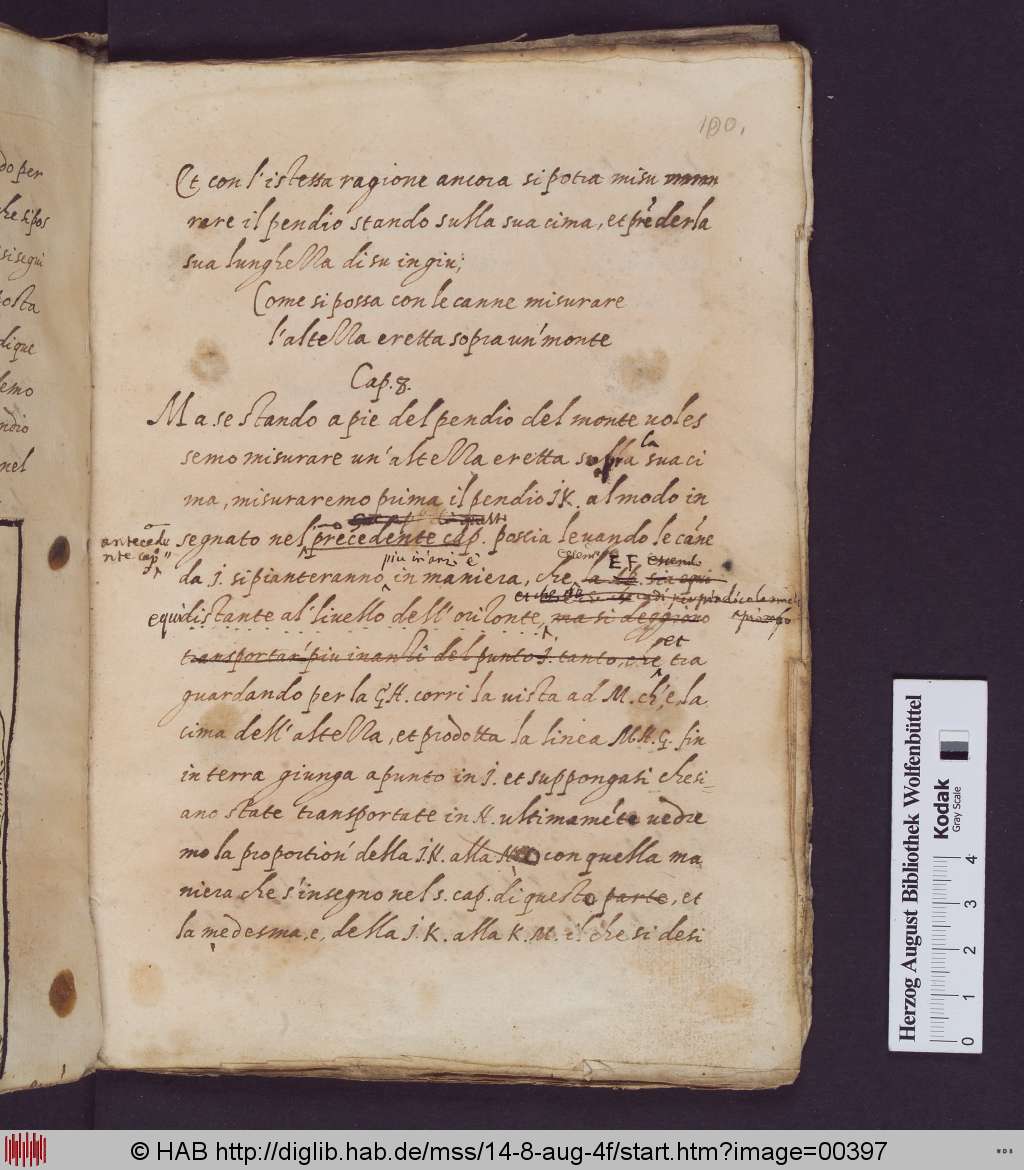 100.
Et con l'istessa ragione ancora si potra misu
rare il pendio stando sulla sua cima, et prēderla
sua lunghezza di su in giu;
Come si possa con le canne misurare
l'altezza eretta sopra un' monte
Cap. 8.
Ma se stando a pie del pendio del monte voles
semo misurare un'altezza eretta sopra la sua ci
ma, misuraremo prima il pendio I.K. al modo in
antecede
nte cap.
segnato nel precedente cap. poscia levando le cāne
piu in'anzi
da I. si pianteranno in maniera, che E.F. essendo
equidistante al'livello dell'orizonte, ma si deggiono
a piombo
transportar' piu inanzi del punto I. tanto, che et tra
guardando per la G.H. corri la vista ad M. ch'e la
cima dell'altezza, et prodotta la linea M.H.G. fin
in terra giunga apunto in I. et suppongasi che si=
ano state transportate in N. ultimamēte vedre
mo la proportion' della I.N. alla con quella ma
niera che s'insegno nel s. cap. di questo parte, et
la medesma, e, della I.K. alla K.M. il che si desi
do per
he si pos
si segui
osta
di que
emo
ndio
nel
Herzog August Bibliothek Wolfenbüttel
Kodak
Gray Scale
0 1 2 3 4
© HAB http://diglib.hab.de/mss/14-8-aug-4f/start.htm?image=00397